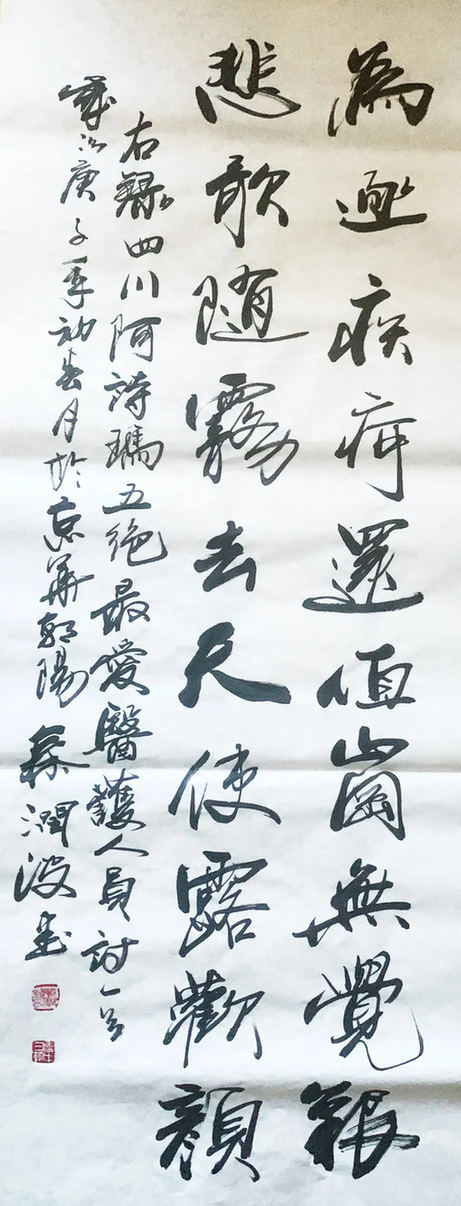 為逐疾疴還值崗無覺艱
悲歌隨霧去天使露歡顏
右錄四川阿詩瑪五絕最愛醫護人員詩一首
歲次庚子年初春月於京華朝陽潤波書